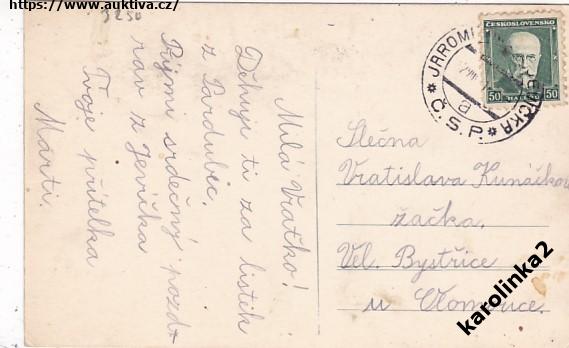 https://www.auktiva.cz/
3250
Milá Vratko!
Děkuji ti za lístek
z Pardubic.
Přijmi srdečný pozd-
rav z Jevíčka
Tvoje přítelka
Márti.
ČESKOSLOVENSKO
50 HALÉŘŮ 50
JAROMĚ
Č.S.P.
a
Slečna
Vratislava Kunáčkov
žačka.
Vel. Bystřice
u Olomouce.
karolinka2